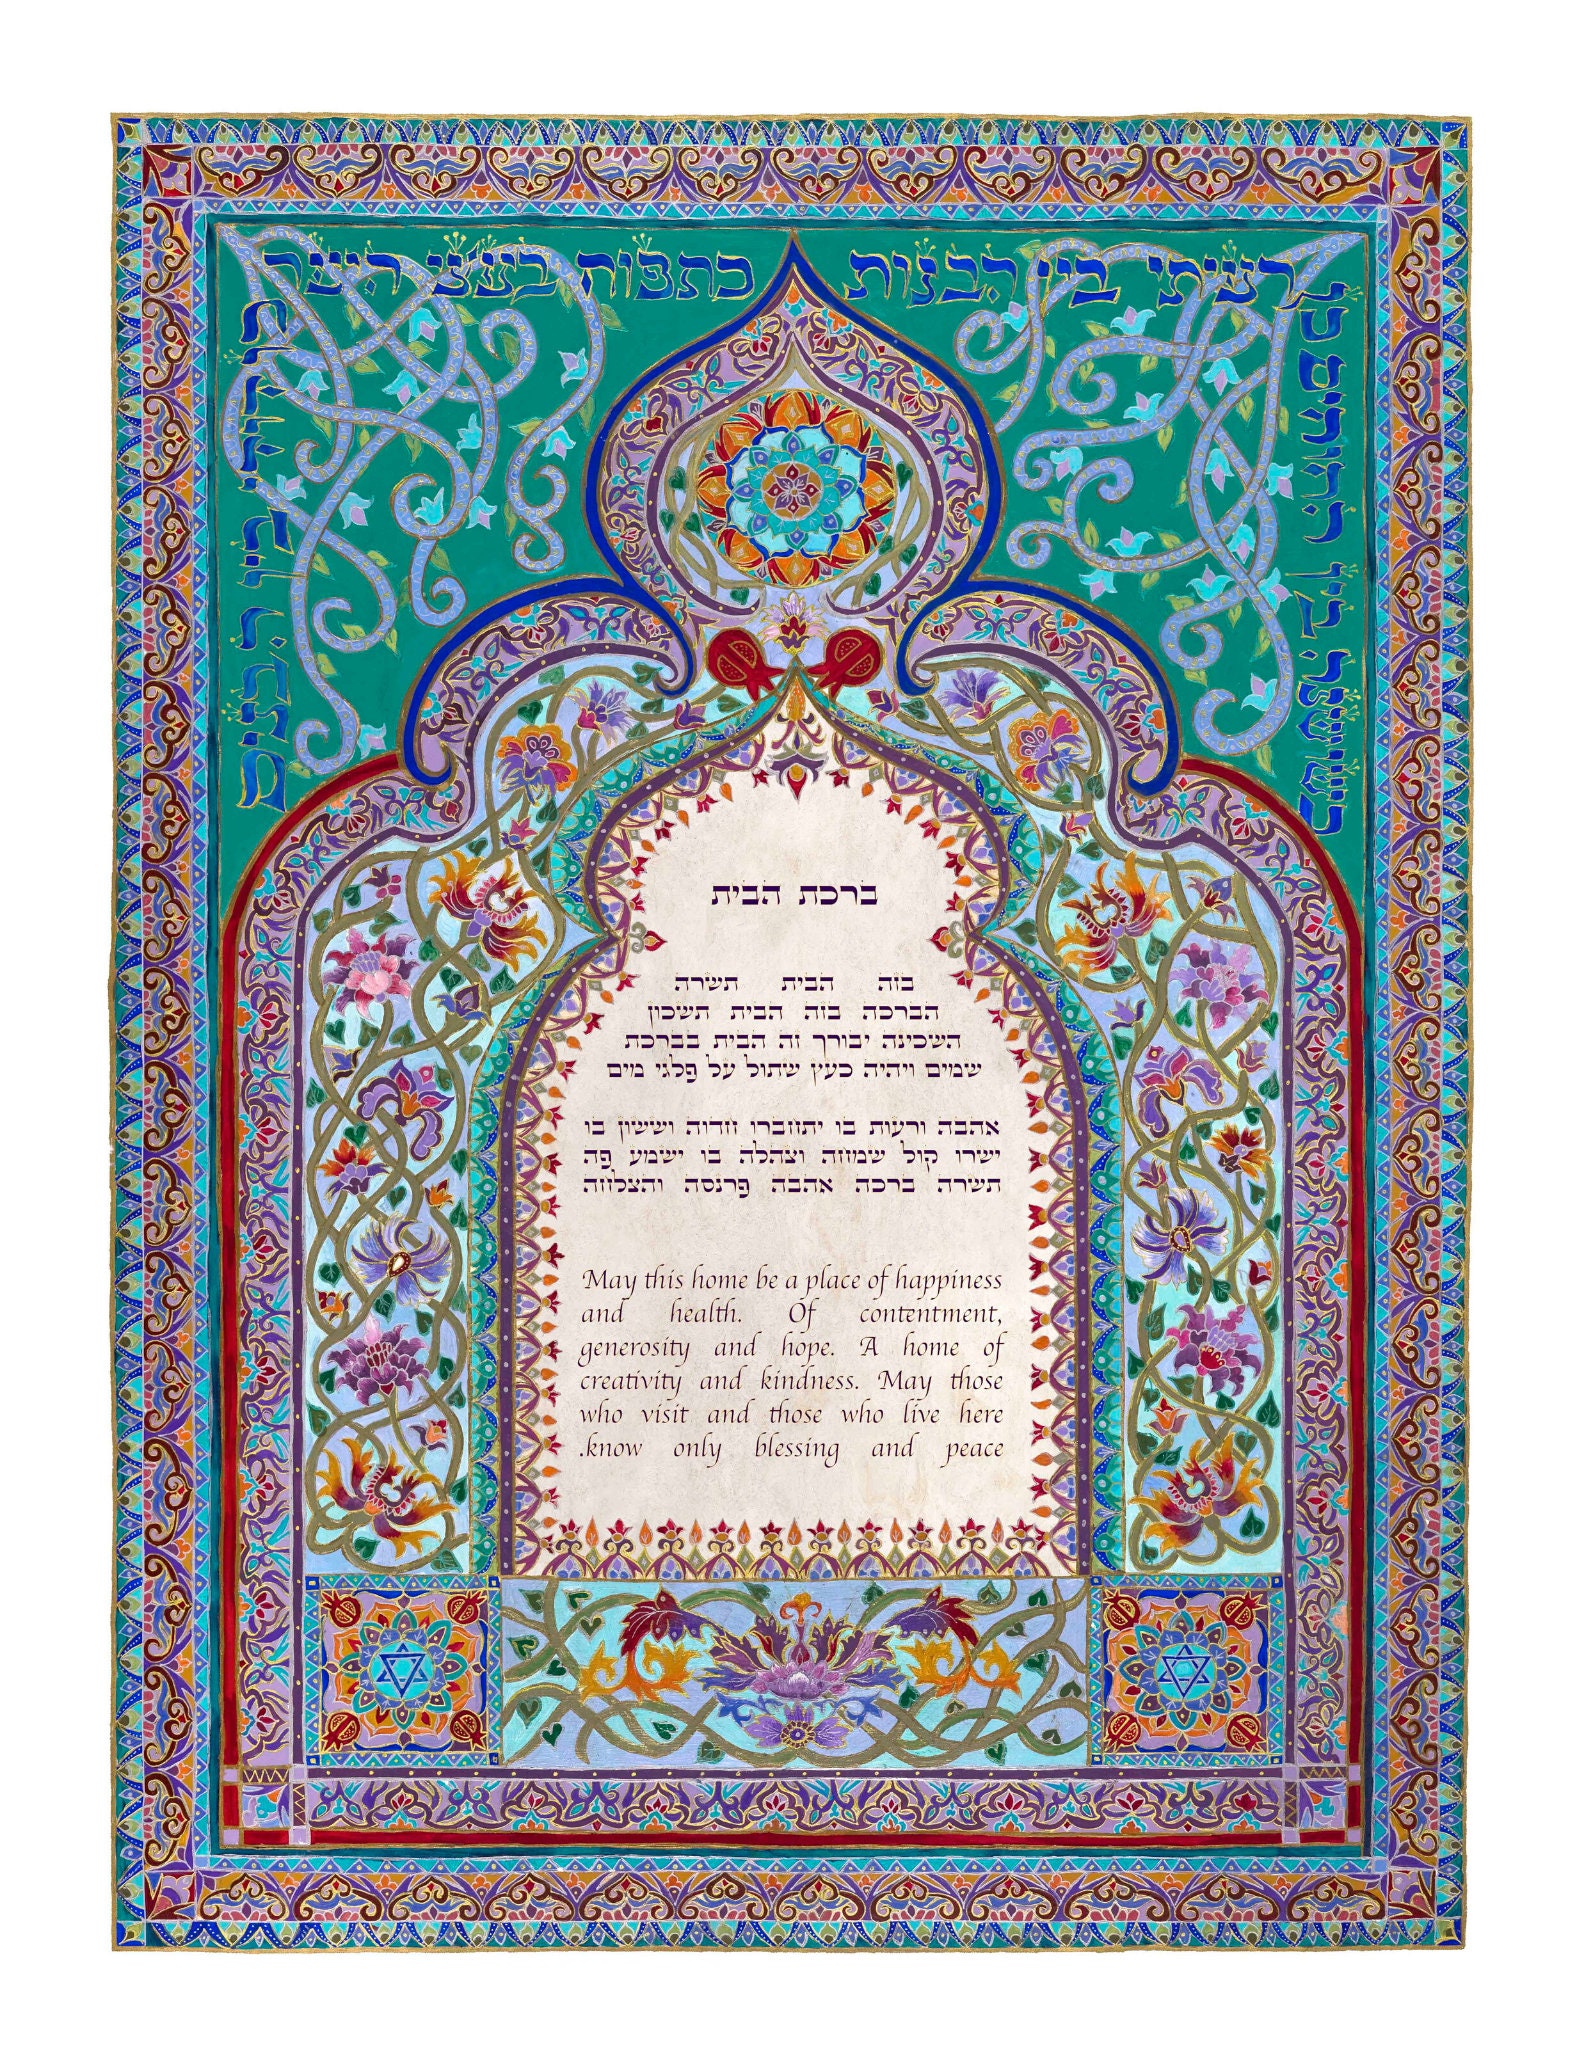 כשושנה בין החוחים כן
רעיתי בין הבנות כתפוח בעצי היער
כן דודי בין הבנים
ברכת הבית
בזה הבית תשרה
הברכה בזה הבית תשכון
השכינה יבורך זה הבית בברכת
שמים ויהיה כעץ שתול על פלגי מים
אהבה ורעות בו יתחברו חדוה וששון בו
ישרו קול שמחה וצהלה בו ישמע פה
תשרה ברכה אהבה פרנסה והצלחה
May this home be a place of happiness
and health. Of contentment,
generosity and hope. A home of
creativity and kindness. May those
who visit and those who live here
.know only blessing and peace